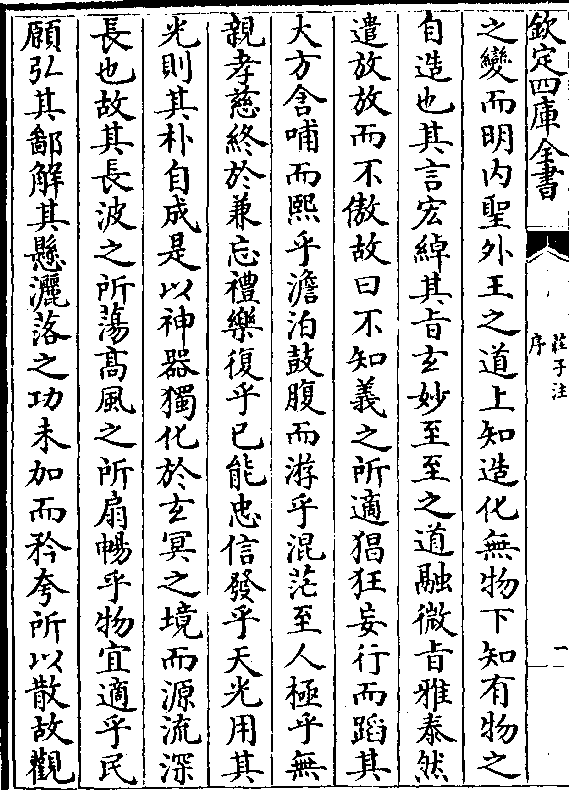 欽定四庫全書
莊子注
序
一
之變而明内聖外王之道上知造化無物下知有物之
自造也其言宏綽其㫖玄妙至至之道融微㫖雅泰然
遣放放而不傲故曰不知義之所適猖狂妄行而蹈其
大方含哺而熙乎澹泊鼓腹而游乎混茫至人極乎無
親孝慈終於兼忘禮樂復乎已能忠信發乎天光用其
光則其朴自成是以神器獨化於玄冥之境而源流深
長也故其長波之所蕩高風之所扇暢乎物宜適乎民
願弘其鄙解其懸灑落之功未加而矜夸所以散故觀